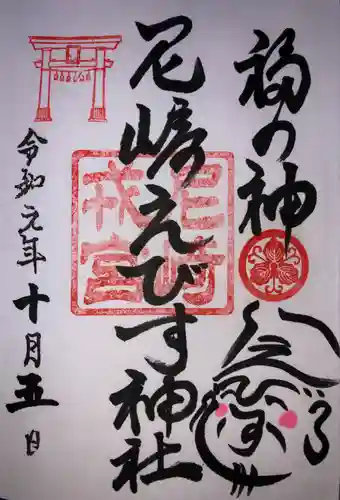 福の神
尼崎えびす神社
令和元年十月五日
尼崎
戎宮